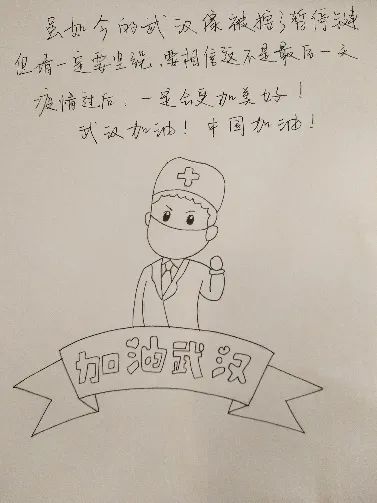 虽然今的武汉像被按了暂停键
但请一定要坚强,要相信这不是最后一次
疫情过后,一定会更加美好!
武汉加油!中国加油!
加油武汉